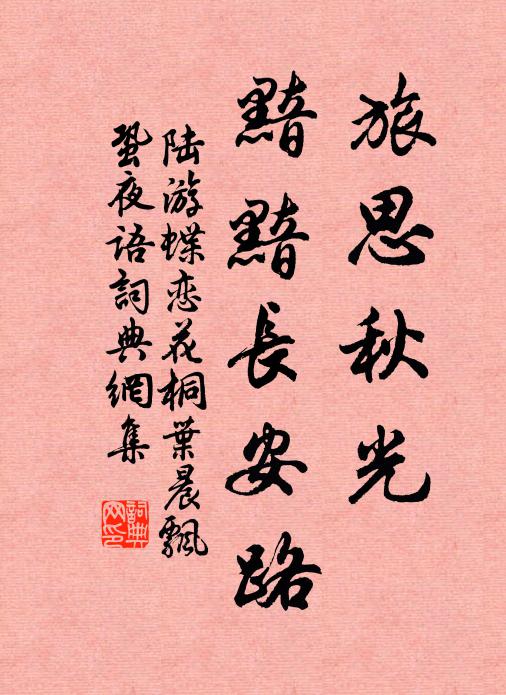 旅思秋光
黯黯長安路
陆游蝶恋花桐葉晨飄
蛩夜语詞典網集
詞典网印